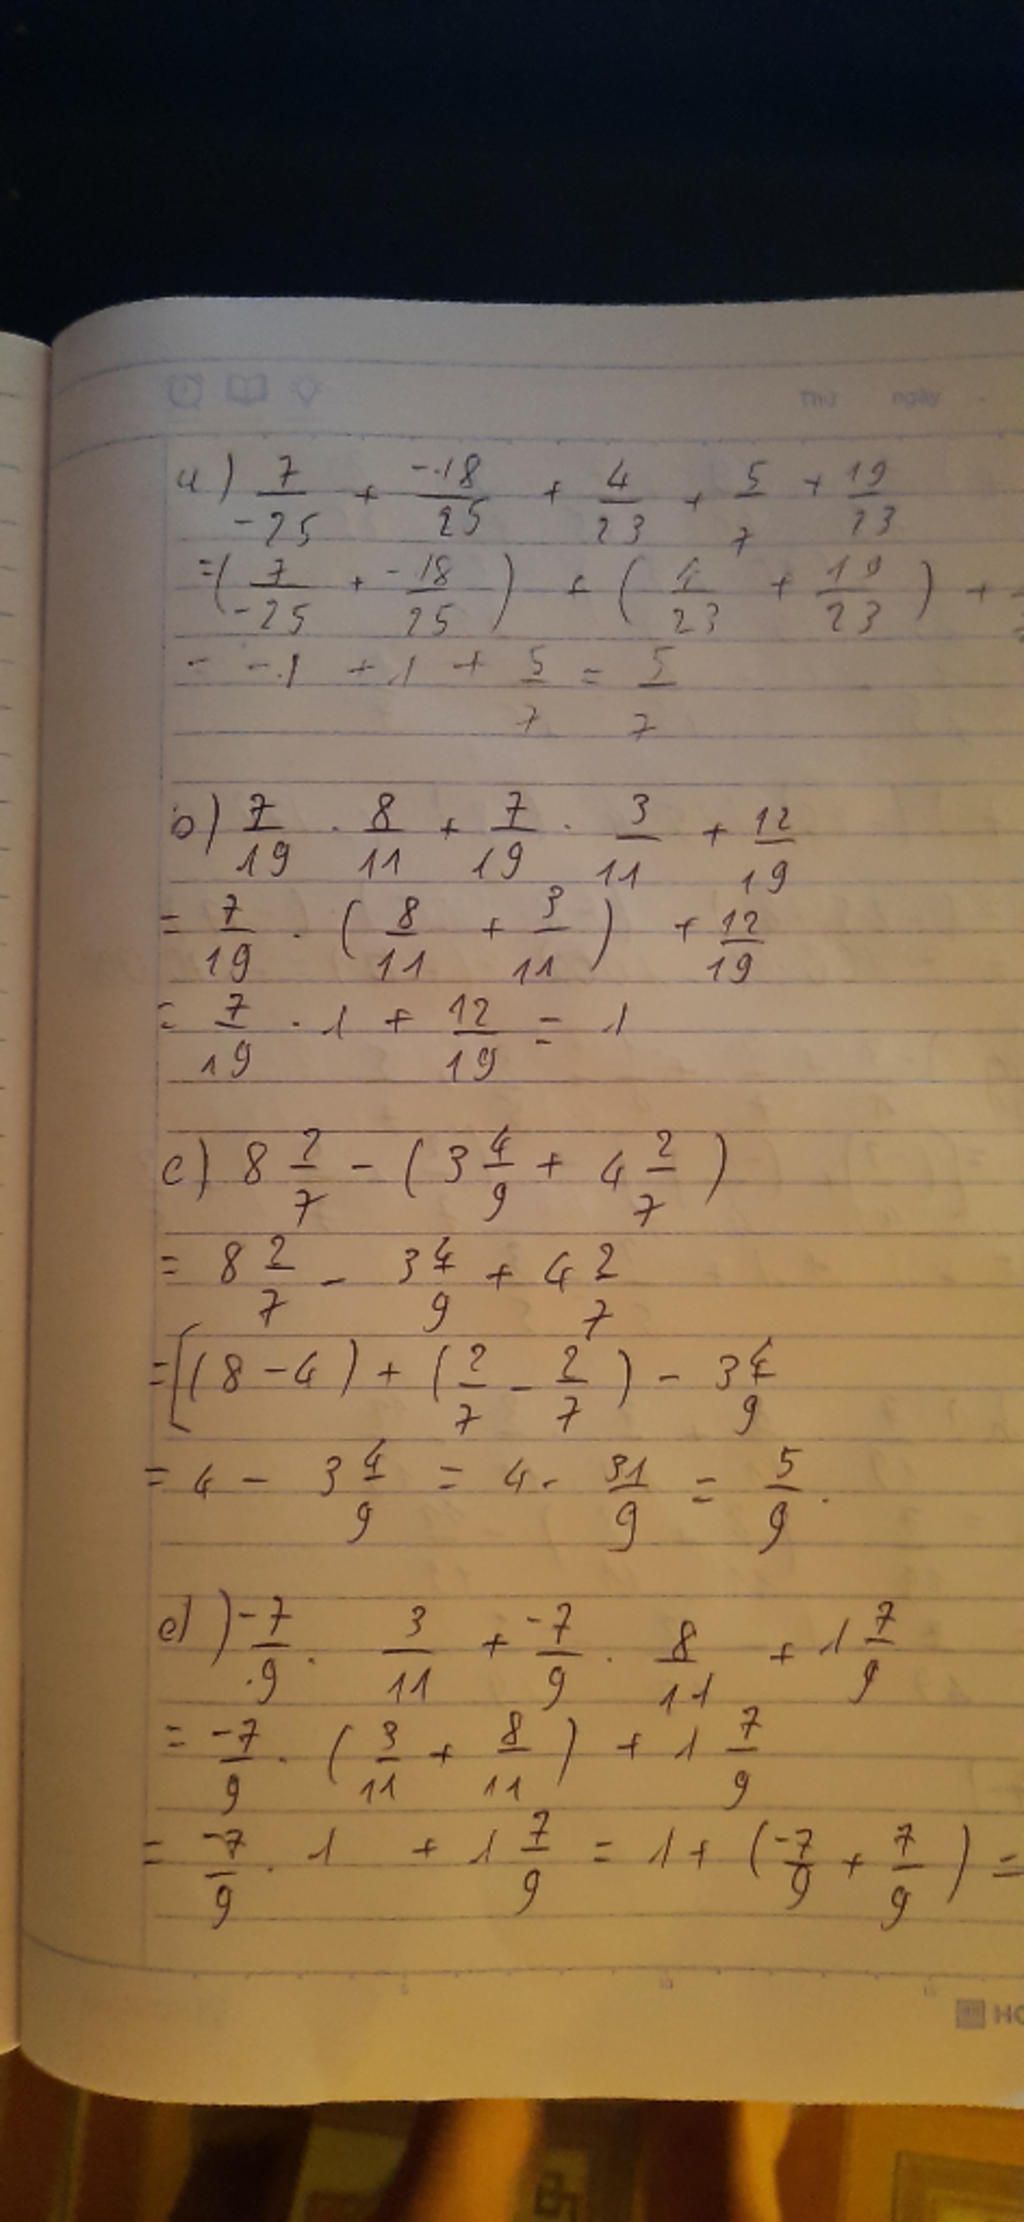 Thứ ngày
a) 7/-25 + -18/25 + 4/23 + 5/7 + 19/23
= (7/-25 + -18/25) + (4/23 + 19/23) +
= -1 + 1 + 5/7 = 5/7
b) 7/19 . 8/11 + 7/19 . 3/11 + 12/19
= 7/19 . (8/11 + 3/11) + 12/19
= 7/19 . 1 + 12/19 = 1
c) 8 2/7 - (3 4/9 + 4 2/7)
= 8 2/7 - 3 4/9 + 4 2/7
= [(8 - 4) + (2/7 - 2/7) - 3 4/9
= 4 - 3 4/9 = 4 - 31/9 = 5/9.
d) -7/9 . 3/11 + -7/9 . 8/11 + 1 7/9
= -7/9 . (3/11 + 8/11) + 1 7/9
= -7/9 . 1 + 1 7/9 = 1 + (-7/9 + 7/9) =
5 10 15
HO